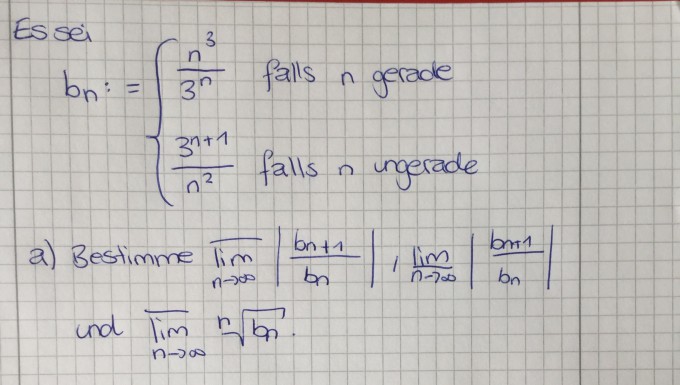 Es sei
bₙ := { n³/3ⁿ falls n gerade
3ⁿ⁺¹/n² falls n ungerade
a) Bestimme \overline{lim}_{n→∞} |bₙ₊₁/bₙ| , \underline{lim}_{n→∞} |bₙ₊₁/bₙ|
und \overline{lim}_{n→∞} ⁿ√bₙ.